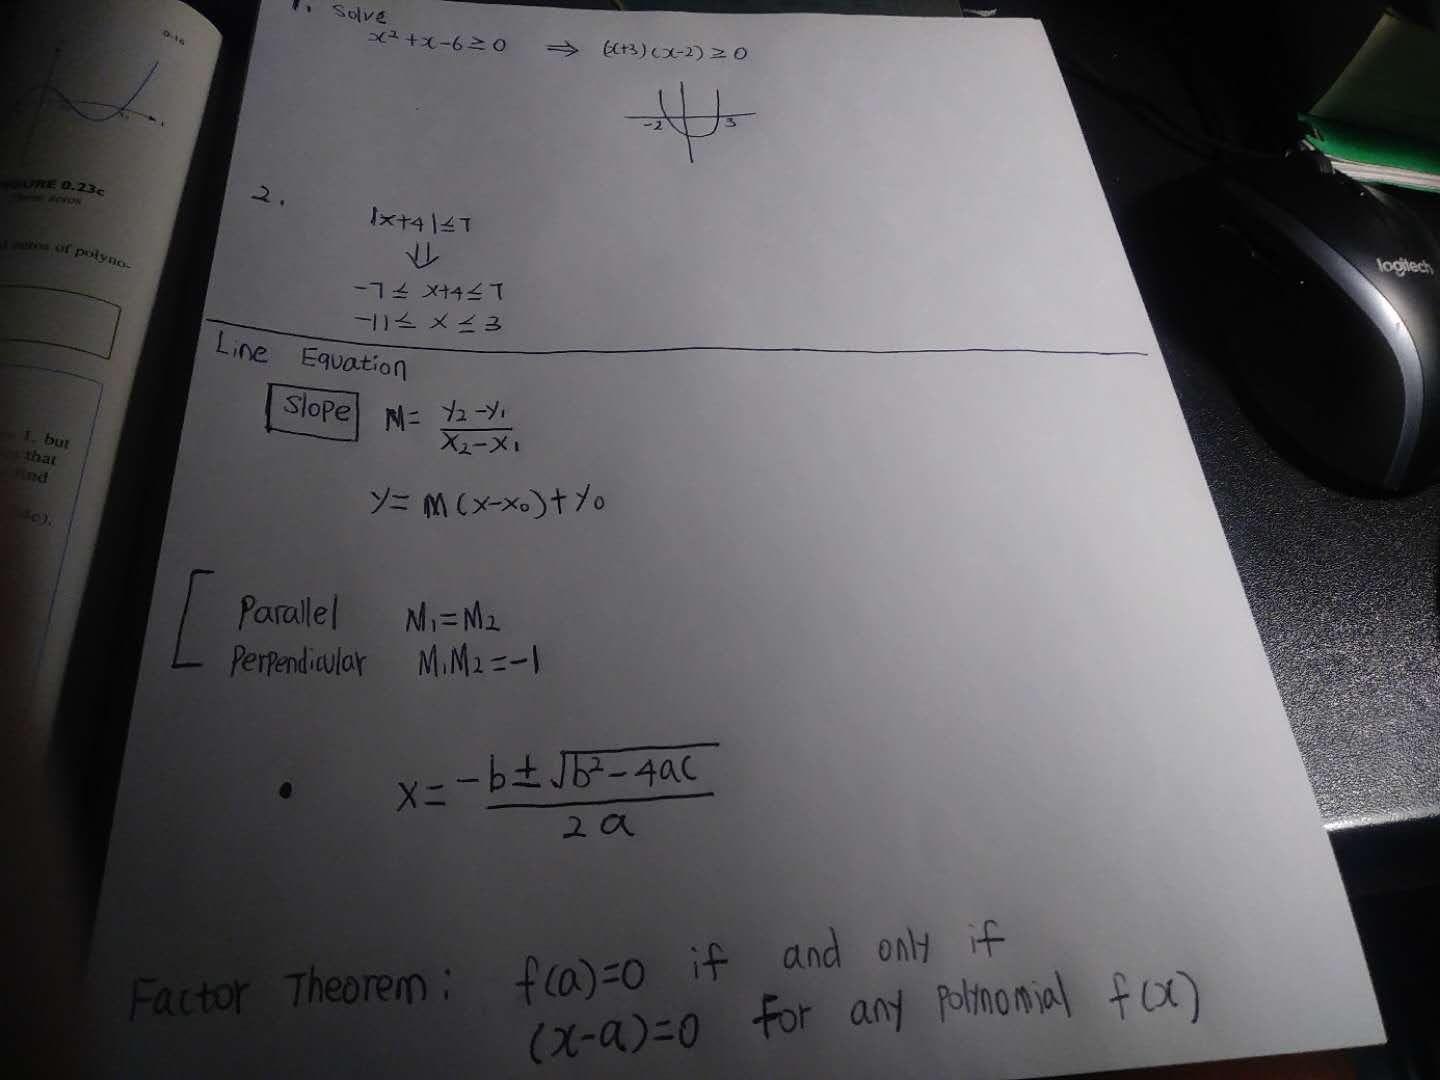 0-16
FIGURE 0.23c
zeros of polyno-
1, but
that
find
1. Solve
x²+x-6≥0 ⇒ (x+3)(x-2)≥0
-2 3
2.
|x+4|≤7
⇓
-7≤ x+4≤7
-11≤ x ≤3
Line Equation
Slope M= (y₂-y₁)/(x₂-x₁)
y= M(x-x₀)+y₀
Parallel M₁=M₂
Perpendicular M₁M₂=-1
• x= (-b±√(b²-4ac))/(2a)
Factor Theorem: f(a)=0 if and only if
(x-a)=0 for any polynomial f(x)
logitech